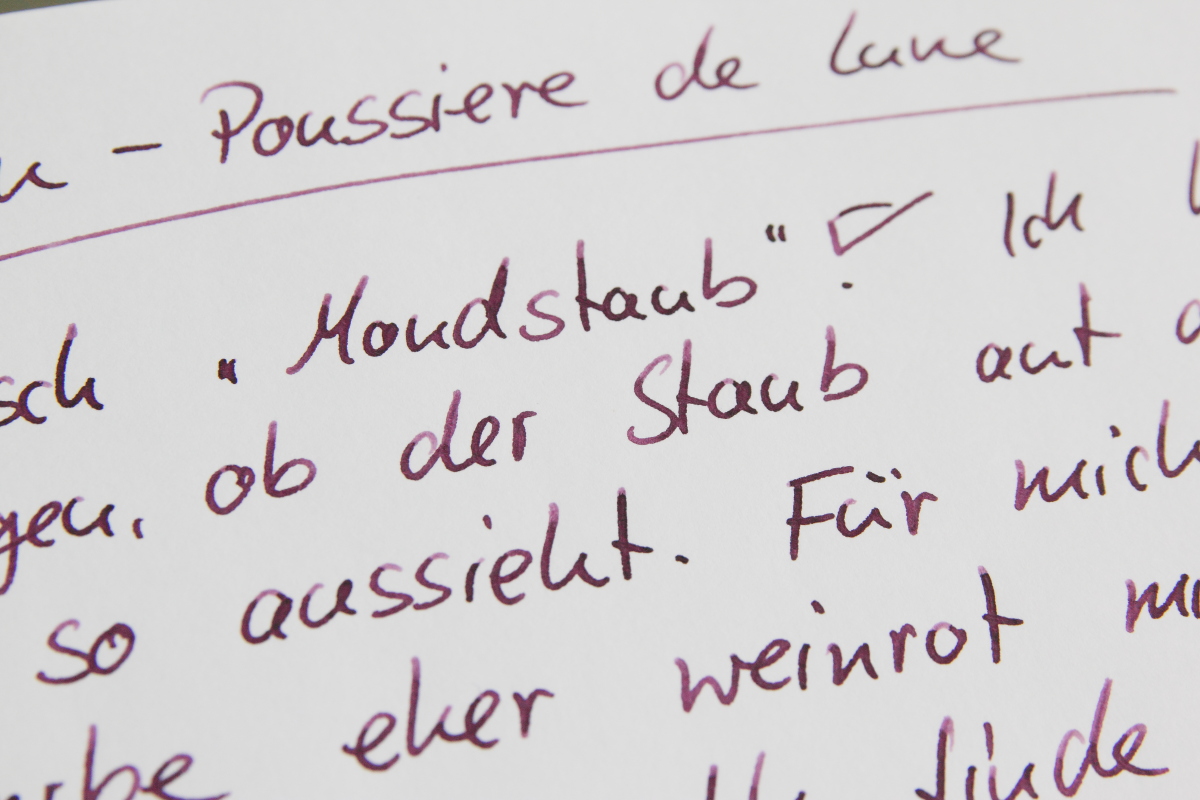 - Poussiere de Lune
sch „Mondstaub"! Ich
gen, ob der Staub auf d
so aussieht. Für mich
rbe eher weinrot mi
Ich finde